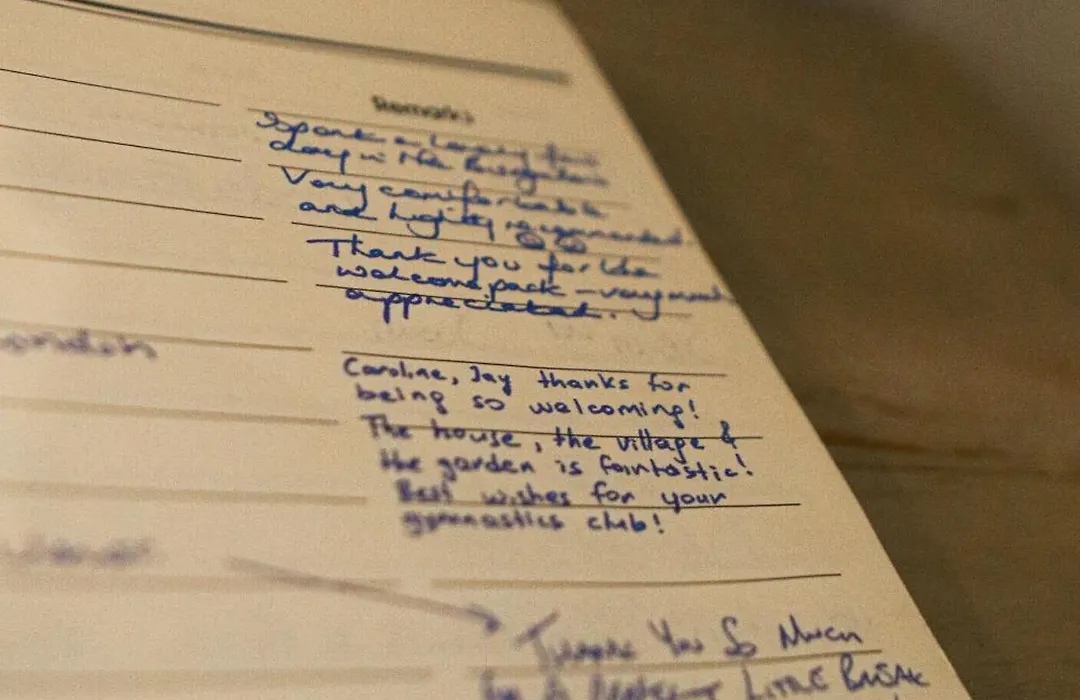 Remarks
Spent a lovely few
days in the
Very comfortable
and highly recommended.
Thank you for the
welcome pack – very much
appreciated.
Caroline, Jay thanks for
being so welcoming!
The house, the village &
the garden is faintastic!
Best wishes for your
gymnastics club!
Thank You So Much
for a Little Break